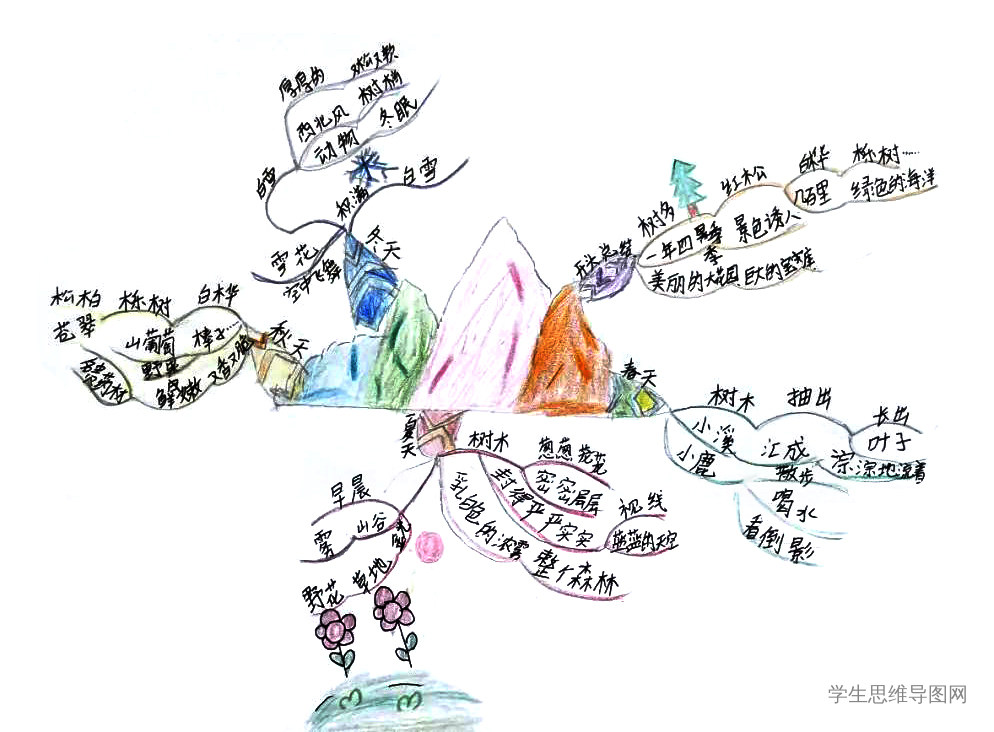 厚厚的
又松又软
西北风
树梢
动物
冬眠
白雪
积满
白雪
雪花
空中飞舞
冬天
树多
红松
白桦
栎树……
几百里
绿色的海洋
一年四季
景色诱人
美丽的大花园
巨大的宝库
总结
松柏
栎树
白桦
苍翠
山葡萄
榛子……
野果
鲜嫩
又香又脆
秋天
春天
树木
抽出
长出
叶子
小溪
汇成
淙淙地流着
小鹿
散步
喝水
看倒影
夏天
树木
葱葱茏茏
密密层层
封得严严实实
视线
蓝蓝的天空
乳白色的浓雾
整个森林
早晨
雾
山谷
草地
野花
学生思维导图网